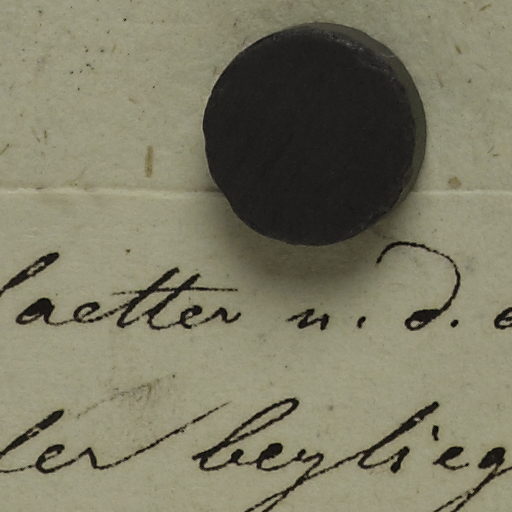 laetter n. d. e
ler beylieg